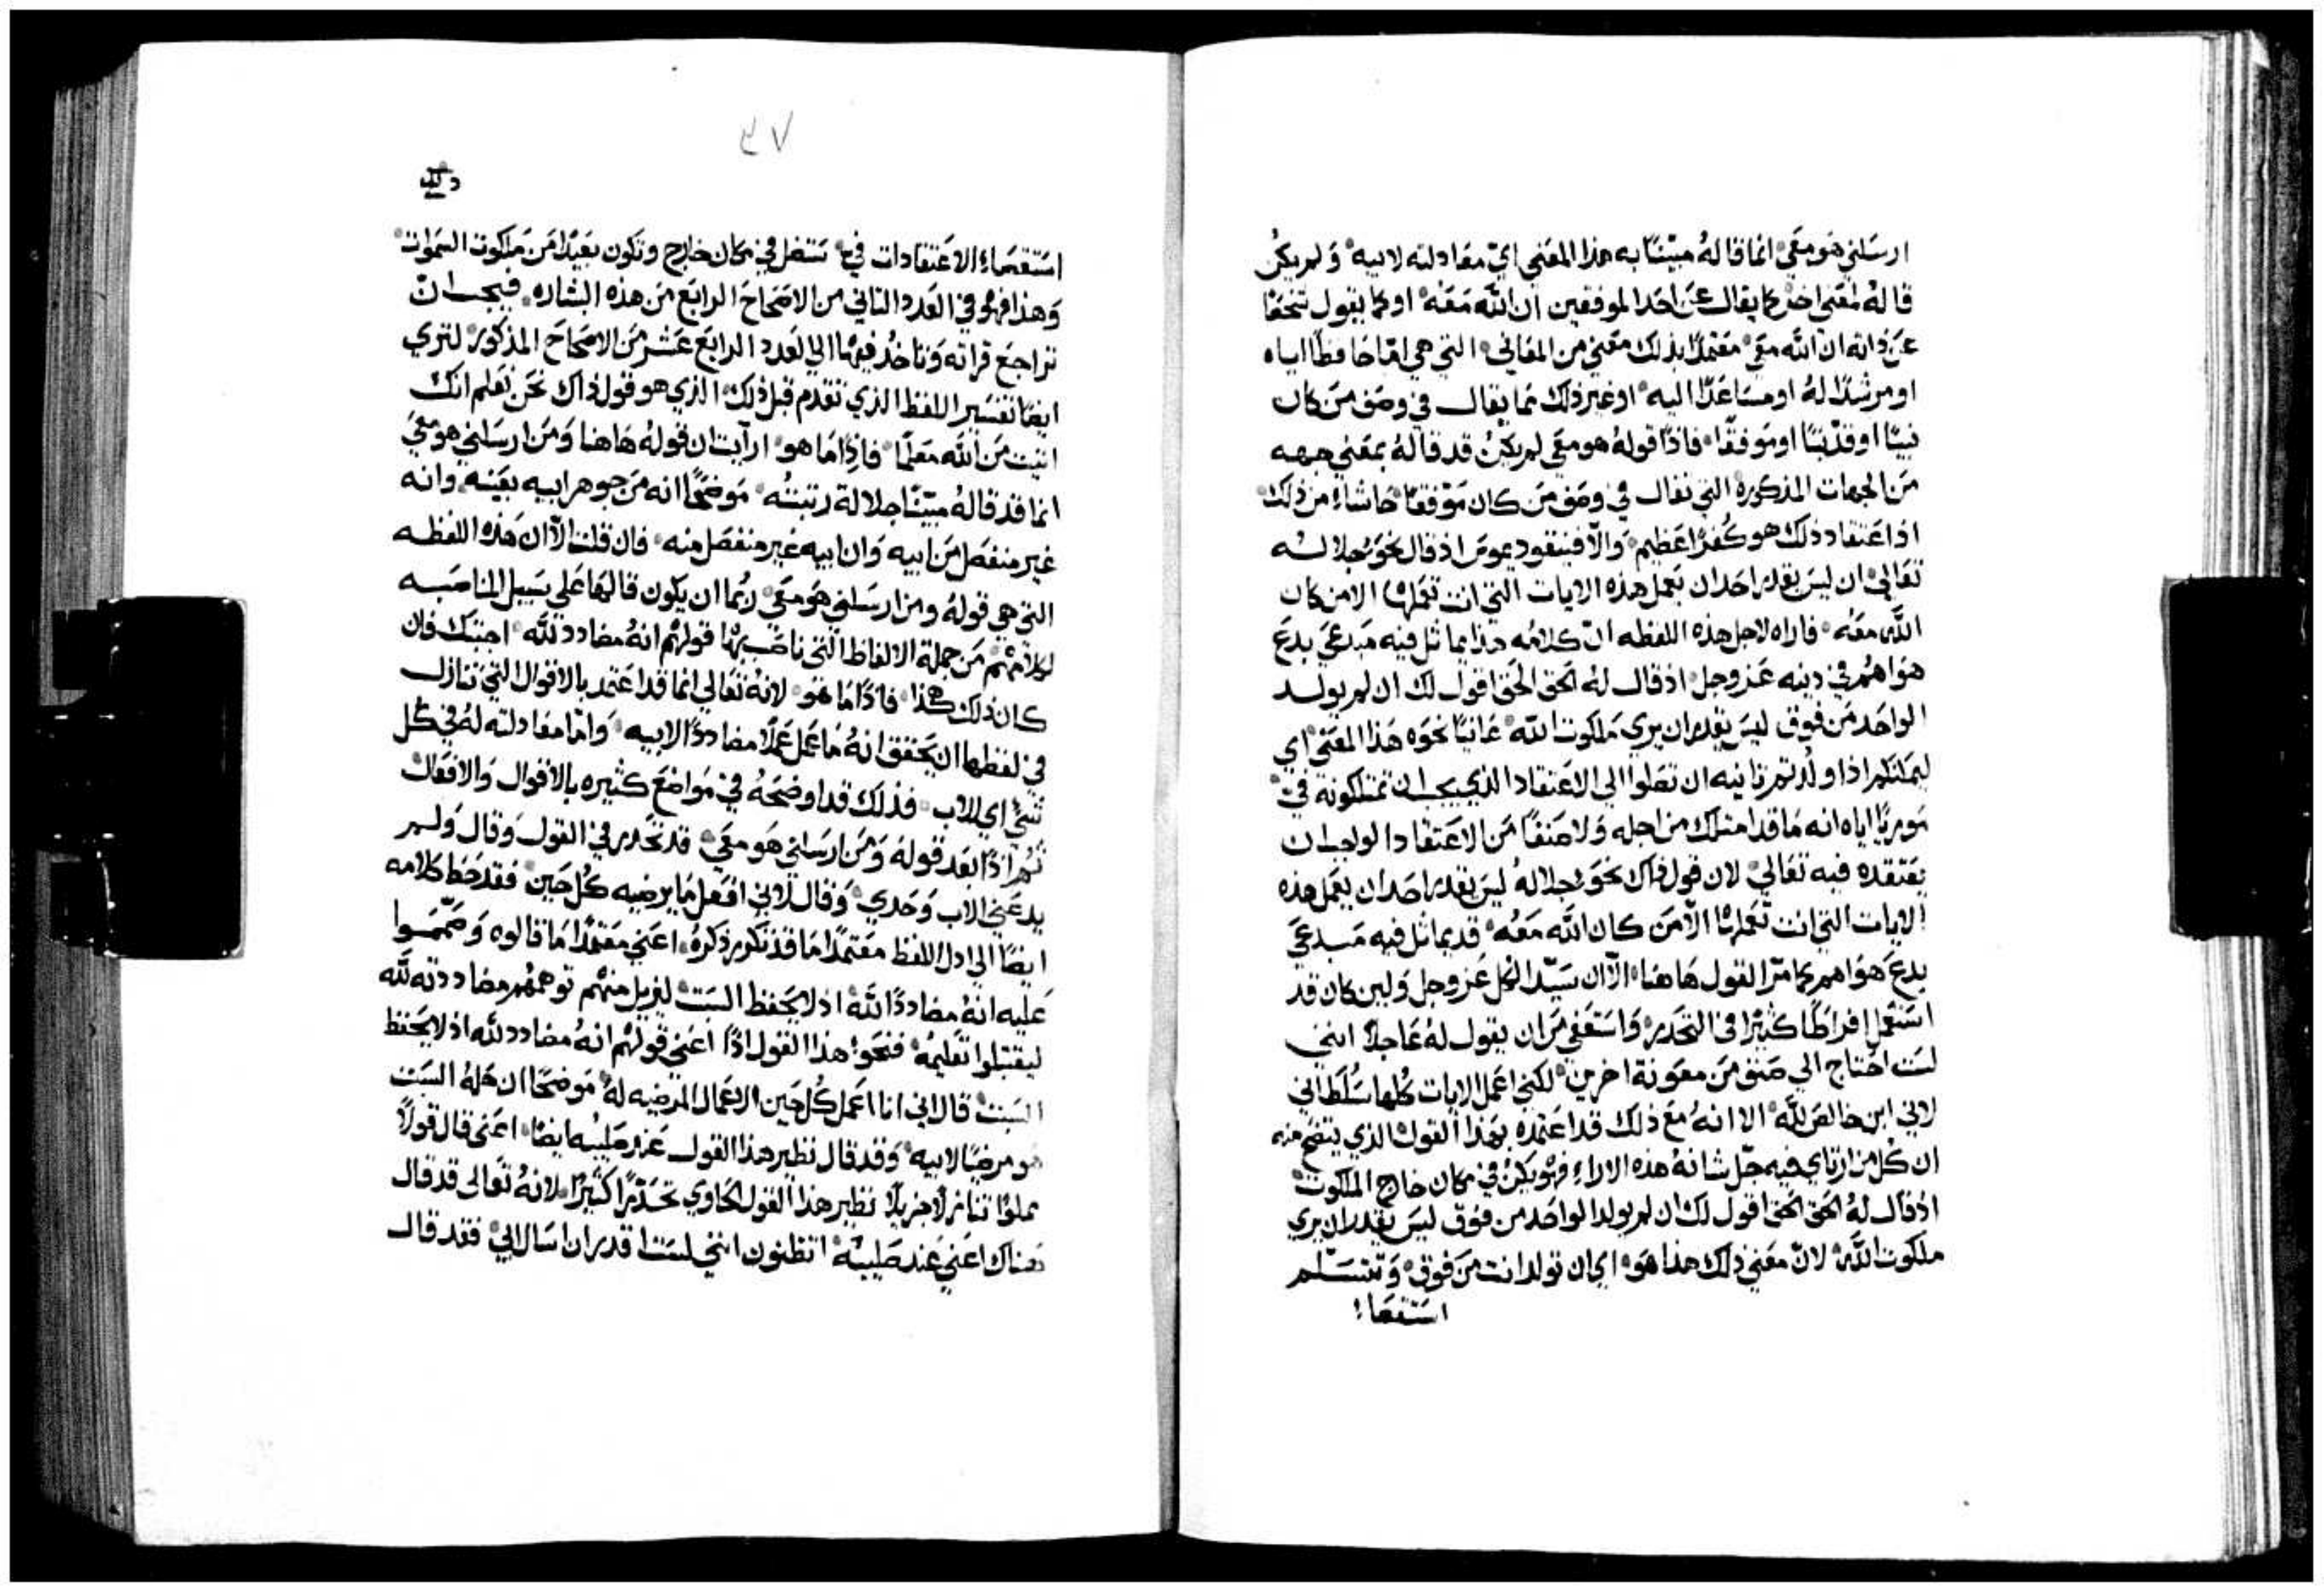 ارسلني هو معي انما قاله مبيّنًا به هذا المعني اي معادلته لابيه ولم يكن
قاله لمعني اخر كما يقال عن احد الموفقين ان الله معه او كما يقول شخصًا
عن ذاته ان الله معي معتمدًا بذلك معني من المعاني التي هي اما حافظًا اياه
او مرشدًا له او مساعدًا اليه او غير ذلك مما يقال في وصف من كان
نبيًا او قديسًا او موفقًا فاذًا قوله هو معي لم يكن قد قاله بمعني جهه
من الجهات المذكوره التي تقال في وصف من كان موفقًا حاشاء من ذلك
اذ اعتقاد ذلك هو كفرًا عظيم والّا فنيقوديموس اذ قال نحو جلالته
تعالي ان ليس يقدر احد ان يعمل هذه الايات التي انت تعملها الا من كان
الله معه فاراه لاجل هذه اللفظه انّ كلامه هذا يماثل فيه مبدعي بدع
هواهم في دينه عز وجل اذ قال له الحق الحق اقول لك ان لم يولد
الواحد من فوق ليس يقدر ان يري ملكوت الله عانيًا نحوه هذا المعني اي
ليمكنكم اذا ولدتم ثانيه ان تصلوا الي الاعتقاد الذي يجب ان تمتلكونه فيّ
موريًا اياه انه ما قد امتلك من اجله ولا صنفًا من الاعتقاد الواجب ان
يعتقده فيه تعالي لان قول ذاك نحو جلاله ليس يقدر احد ان يعمل هذه
الايات التي انت تعملها الّا من كان الله معه قد يماثل فيه مبدعي
بدع هواهم كما مرّ القول هاهنا الّا ان سيّد الكل عز وجل ولين كان قد
استعمل افراطًا كثيرًا في التحدر واستعفي من ان يقول له عاجلًا انني
لست احتاج الي صنف من معونة اخرين لكني اعمل الايات كلها بسلطاني
لاني ابن خالص لله الا انه مع ذلك قد اعتمده بهذا القول الذي يتضح منه
ان كل من ارتاي فيه جل شانه هذه الاراء فهو يكن في مكان خارج الملكوت
اذ قال له الحق الحق اقول لك ان لم يولد الواحد من فوق ليس يقدر ان يري
ملكوت الله لانّ معني ذلك هذا هو اي ان تولد انت من فوق وتتسلم
استقصاء
٤٧
استقصاء الاعتقادات فيّ تتصل في مكان خارج وتكون بعيدًا من ملكوت السموات
وهذا فهو في العدد الثاني من الاصحاح الرابع من هذه البشاره فيجب ان
تراجع قراته وتاخذ فيها الي العدد الرابع عشر من الاصحاح المذكور لتري
ايضًا تفسير اللفظ الذي تقدم قبل ذلك الذي هو قول ذاك نحن نعلم انك
اتيت من الله معلمًا فاذًا ما هو ارآيت ان قوله هاهنا ومن ارسلني هو معي
انما قد قاله مبيّنًا جلالة رتبته موضحًا انه من جوهر ابيه بعينه وانه
غير منفصل من ابيه وان ابيه غير منفصل منه فان قلت الّا ان هذه اللفظه
التي هي قوله ومن ارسلني هو معي ربما ان يكون قالها علي سبيل المناصبه
لكلامهم من جملة الالفاظ التي ناصب بها قولهم انه مضادد لله اجبتك فان
كان ذلك هكذا فاذًا ما هو لانه تعالي انما قد اعتمد بالاقوال التي تنازل
في لفظها ان يحقق انه ما عمل عملًا مضاددًا لابيه واما معادلته له في كل
شيء اي للاب فذلك قد اوضحه في مواضع كثيره بالاقوال والافعال
ثم اذًا بعد قوله ومن ارسلني هو معي قد تحدر في القول وقال ولم
يدعني الاب وحدي وقال لاني افعل ما يرضيه كل حين فقد حط كلامه
ايضًا الي ادل اللفظ معتمدًا ما قد تكرر ذكره اعني معتمدًا ما قالوه وصمموا
عليه انه مضاددًا لله اذ لا يحفظ السبت ليزيل منهم توهمهم مضاددته لله
ليقتبلوا تعليمه فنحو هذا القول اذًا اعني قولهم انه مضادد لله اذ لا يحفظ
السبت قال اني انا اعمل كل حين الاعمال المرضيه له موضحًا ان حله السبت
هو مرضيًا لابيه وقد قال نظير هذا القول عند صليبه ايضًا اعني قال قولًا
مملوًا تنازلًا جزيلًا نظير هذا القول الحاوي تحدّرًا كثيرًا لانه تعالي قد قال
هناك اعني عند صليبه اتظنون انني لست اقدر ان اسال ابي فقد قال